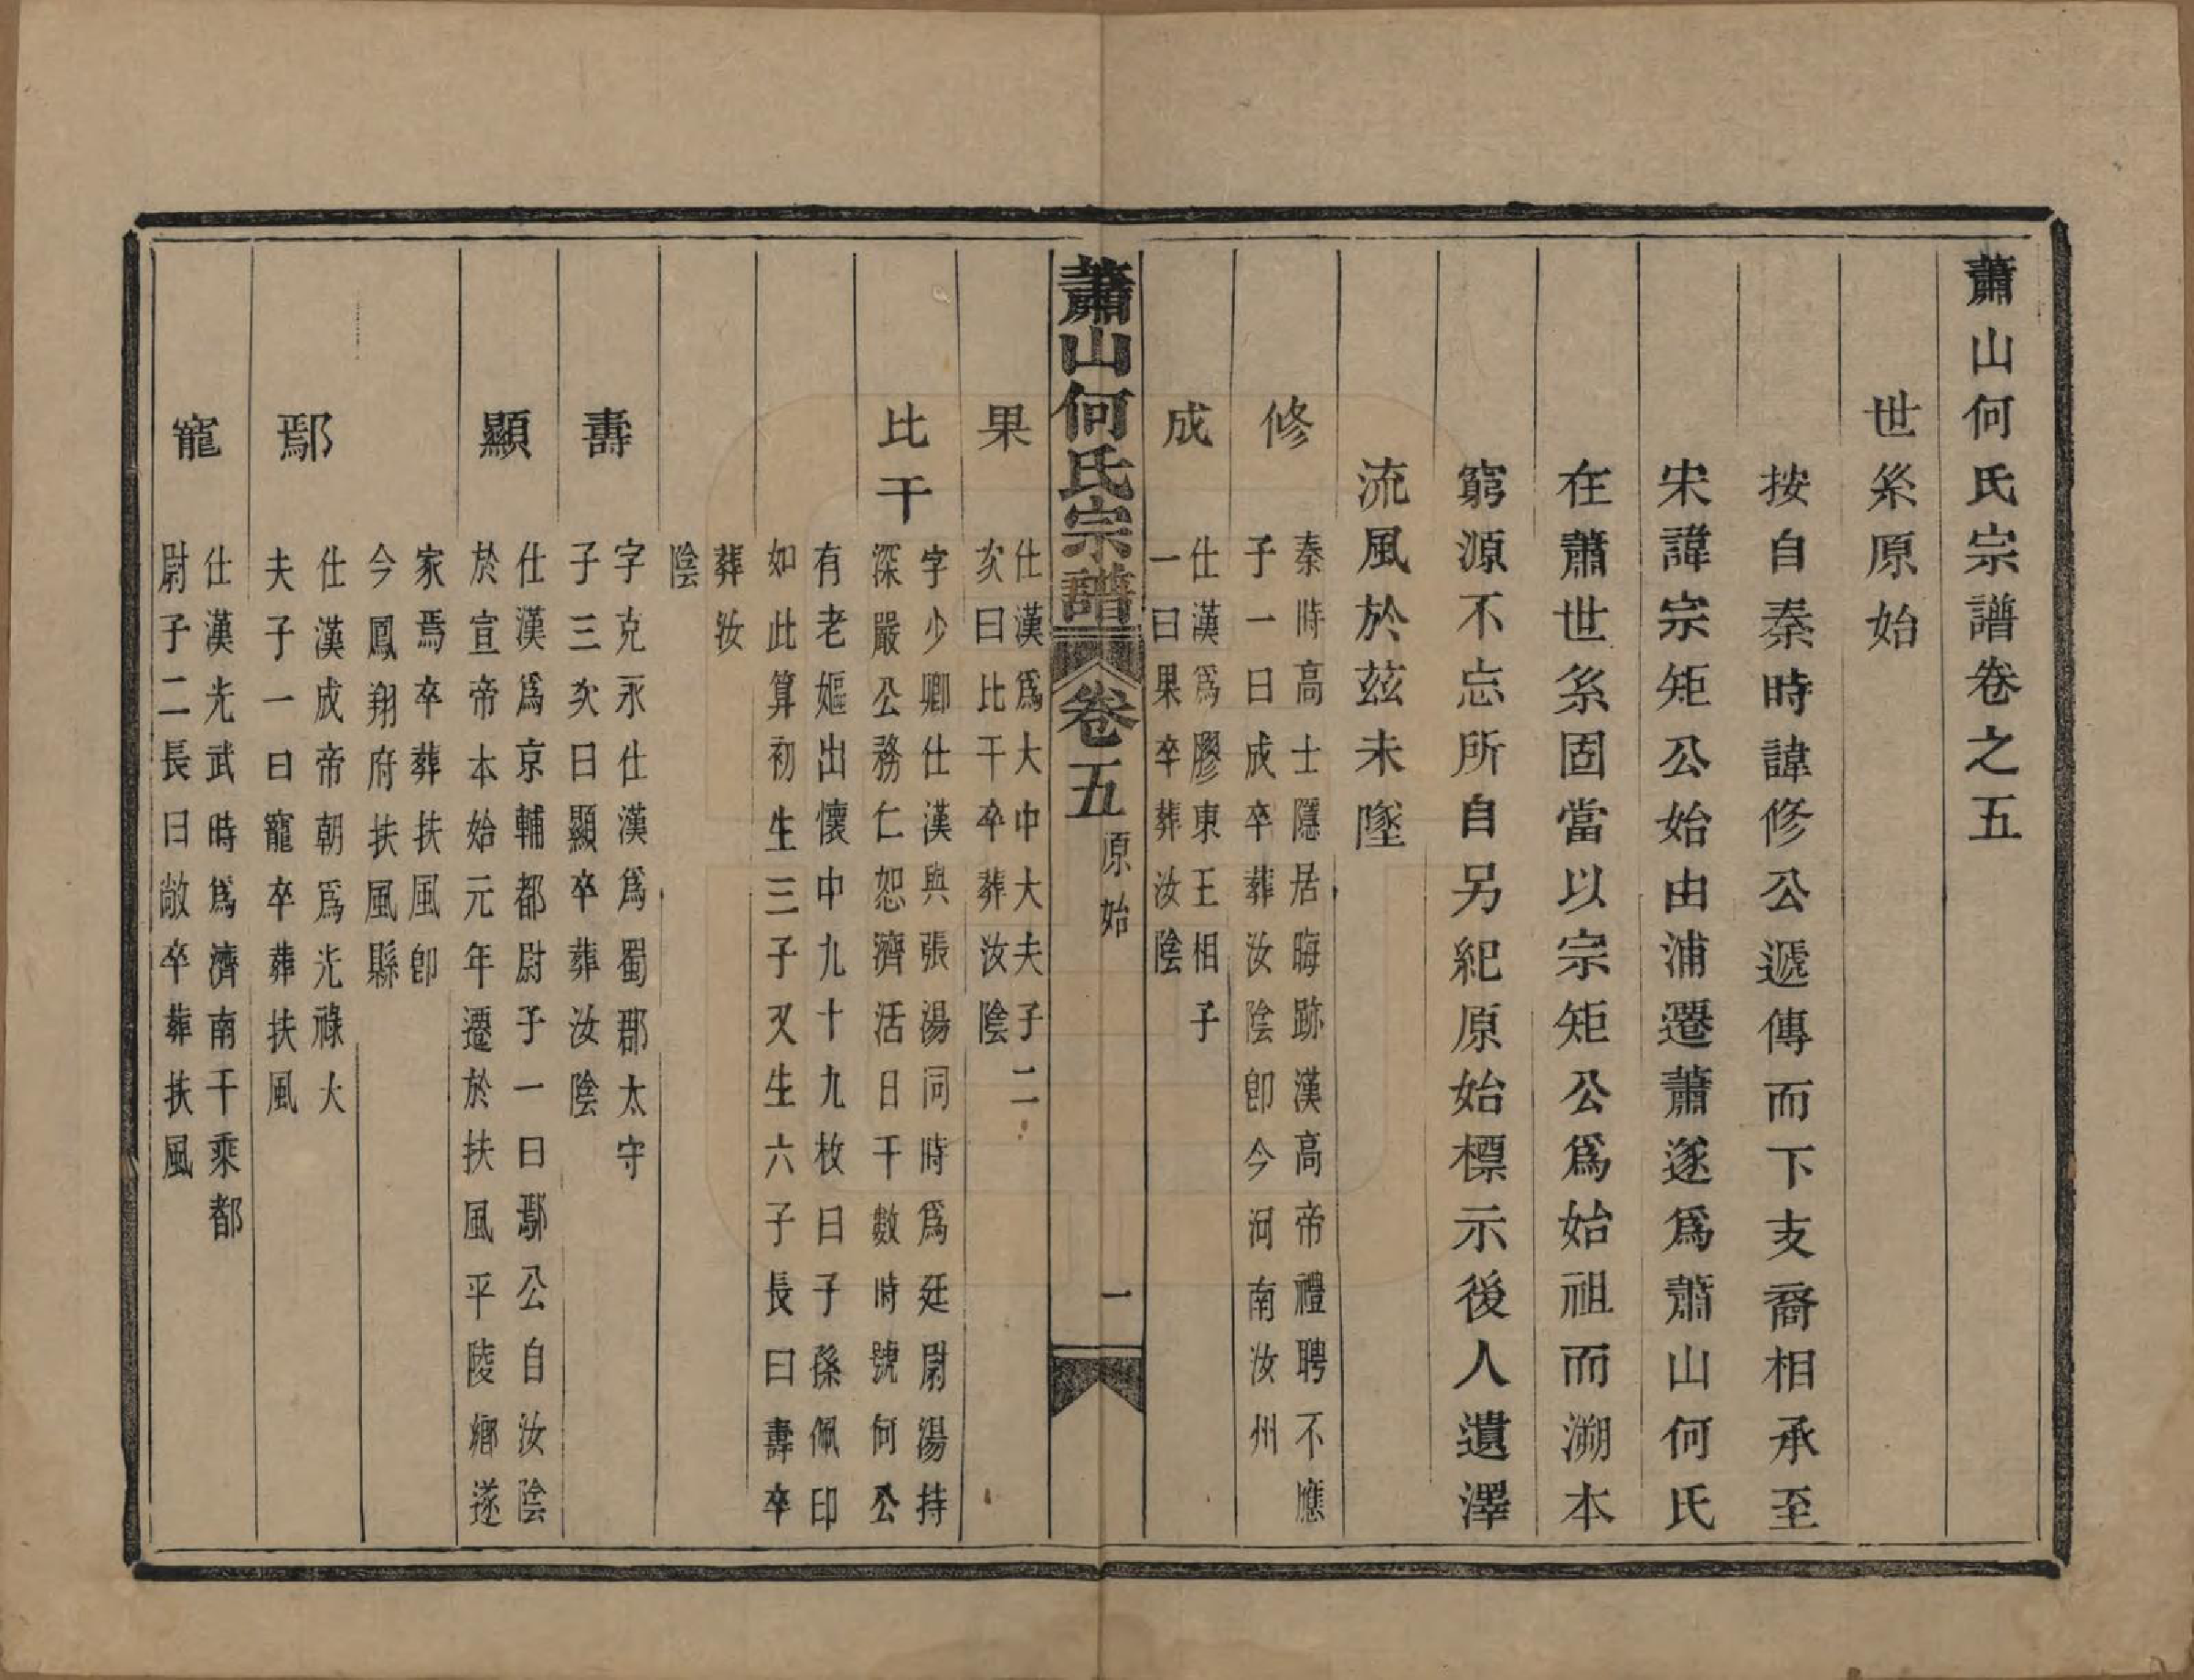 蕭山何氏宗譜卷之五
世系原始
按自秦時諱修公遞傳而下支裔相承至
宋諱宗矩公始由浦遷蕭遂爲蕭山何氏
在蕭世系固當以宗矩公爲始祖而溯本
窮源不忘所自另紀原始標示後人遺澤
流風於茲未墜
修
秦時高士隱居晦跡漢高帝禮聘不應
子一曰成卒葬汝陰卽今河南汝州
成
仕漢爲膠東王相子
一曰果卒葬汝陰
蕭山何氏宗譜 卷五 原始 一
果
仕漢爲大中大夫子二
次曰比干卒葬汝陰
比干
字少卿仕漢與張湯同時爲廷尉湯持
深嚴公務仁恕濟活日干數時號何公
有老嫗出懷中九十九枚曰子孫佩印
如此算初生三子又生六子長曰壽卒
葬汝
陰
壽
字克永仕漢爲蜀郡太守
子三次曰顯卒葬汝陰
顯
仕漢爲京輔都尉子一曰鄢公自汝陰
於宣帝本始元年遷於扶風平陵鄉遂
家焉卒葬扶風卽
今鳳翔府扶風縣
鄢
仕漢成帝朝爲光祿大
夫子一曰寵卒葬扶風
寵
仕漢光武時爲濟南千乘都
尉子二長曰敞卒葬扶風